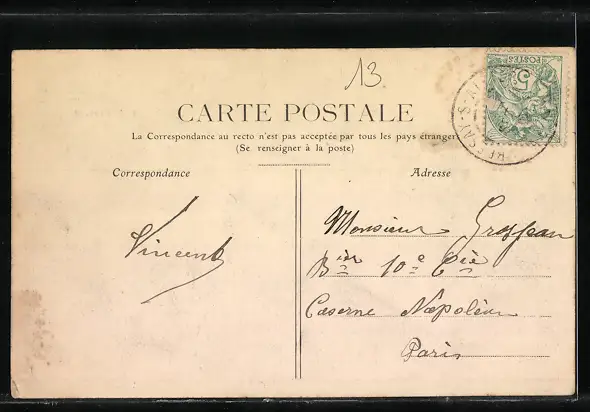 13.
POSTES
5
CARTE POSTALE
La Correspondance au recto n'est pas acceptée par tous les pays étrangers
(Se renseigner à la poste)
Correspondance
Adresse
Vincent
Monsieur
10e Cie
Caserne Napoléon
Paris